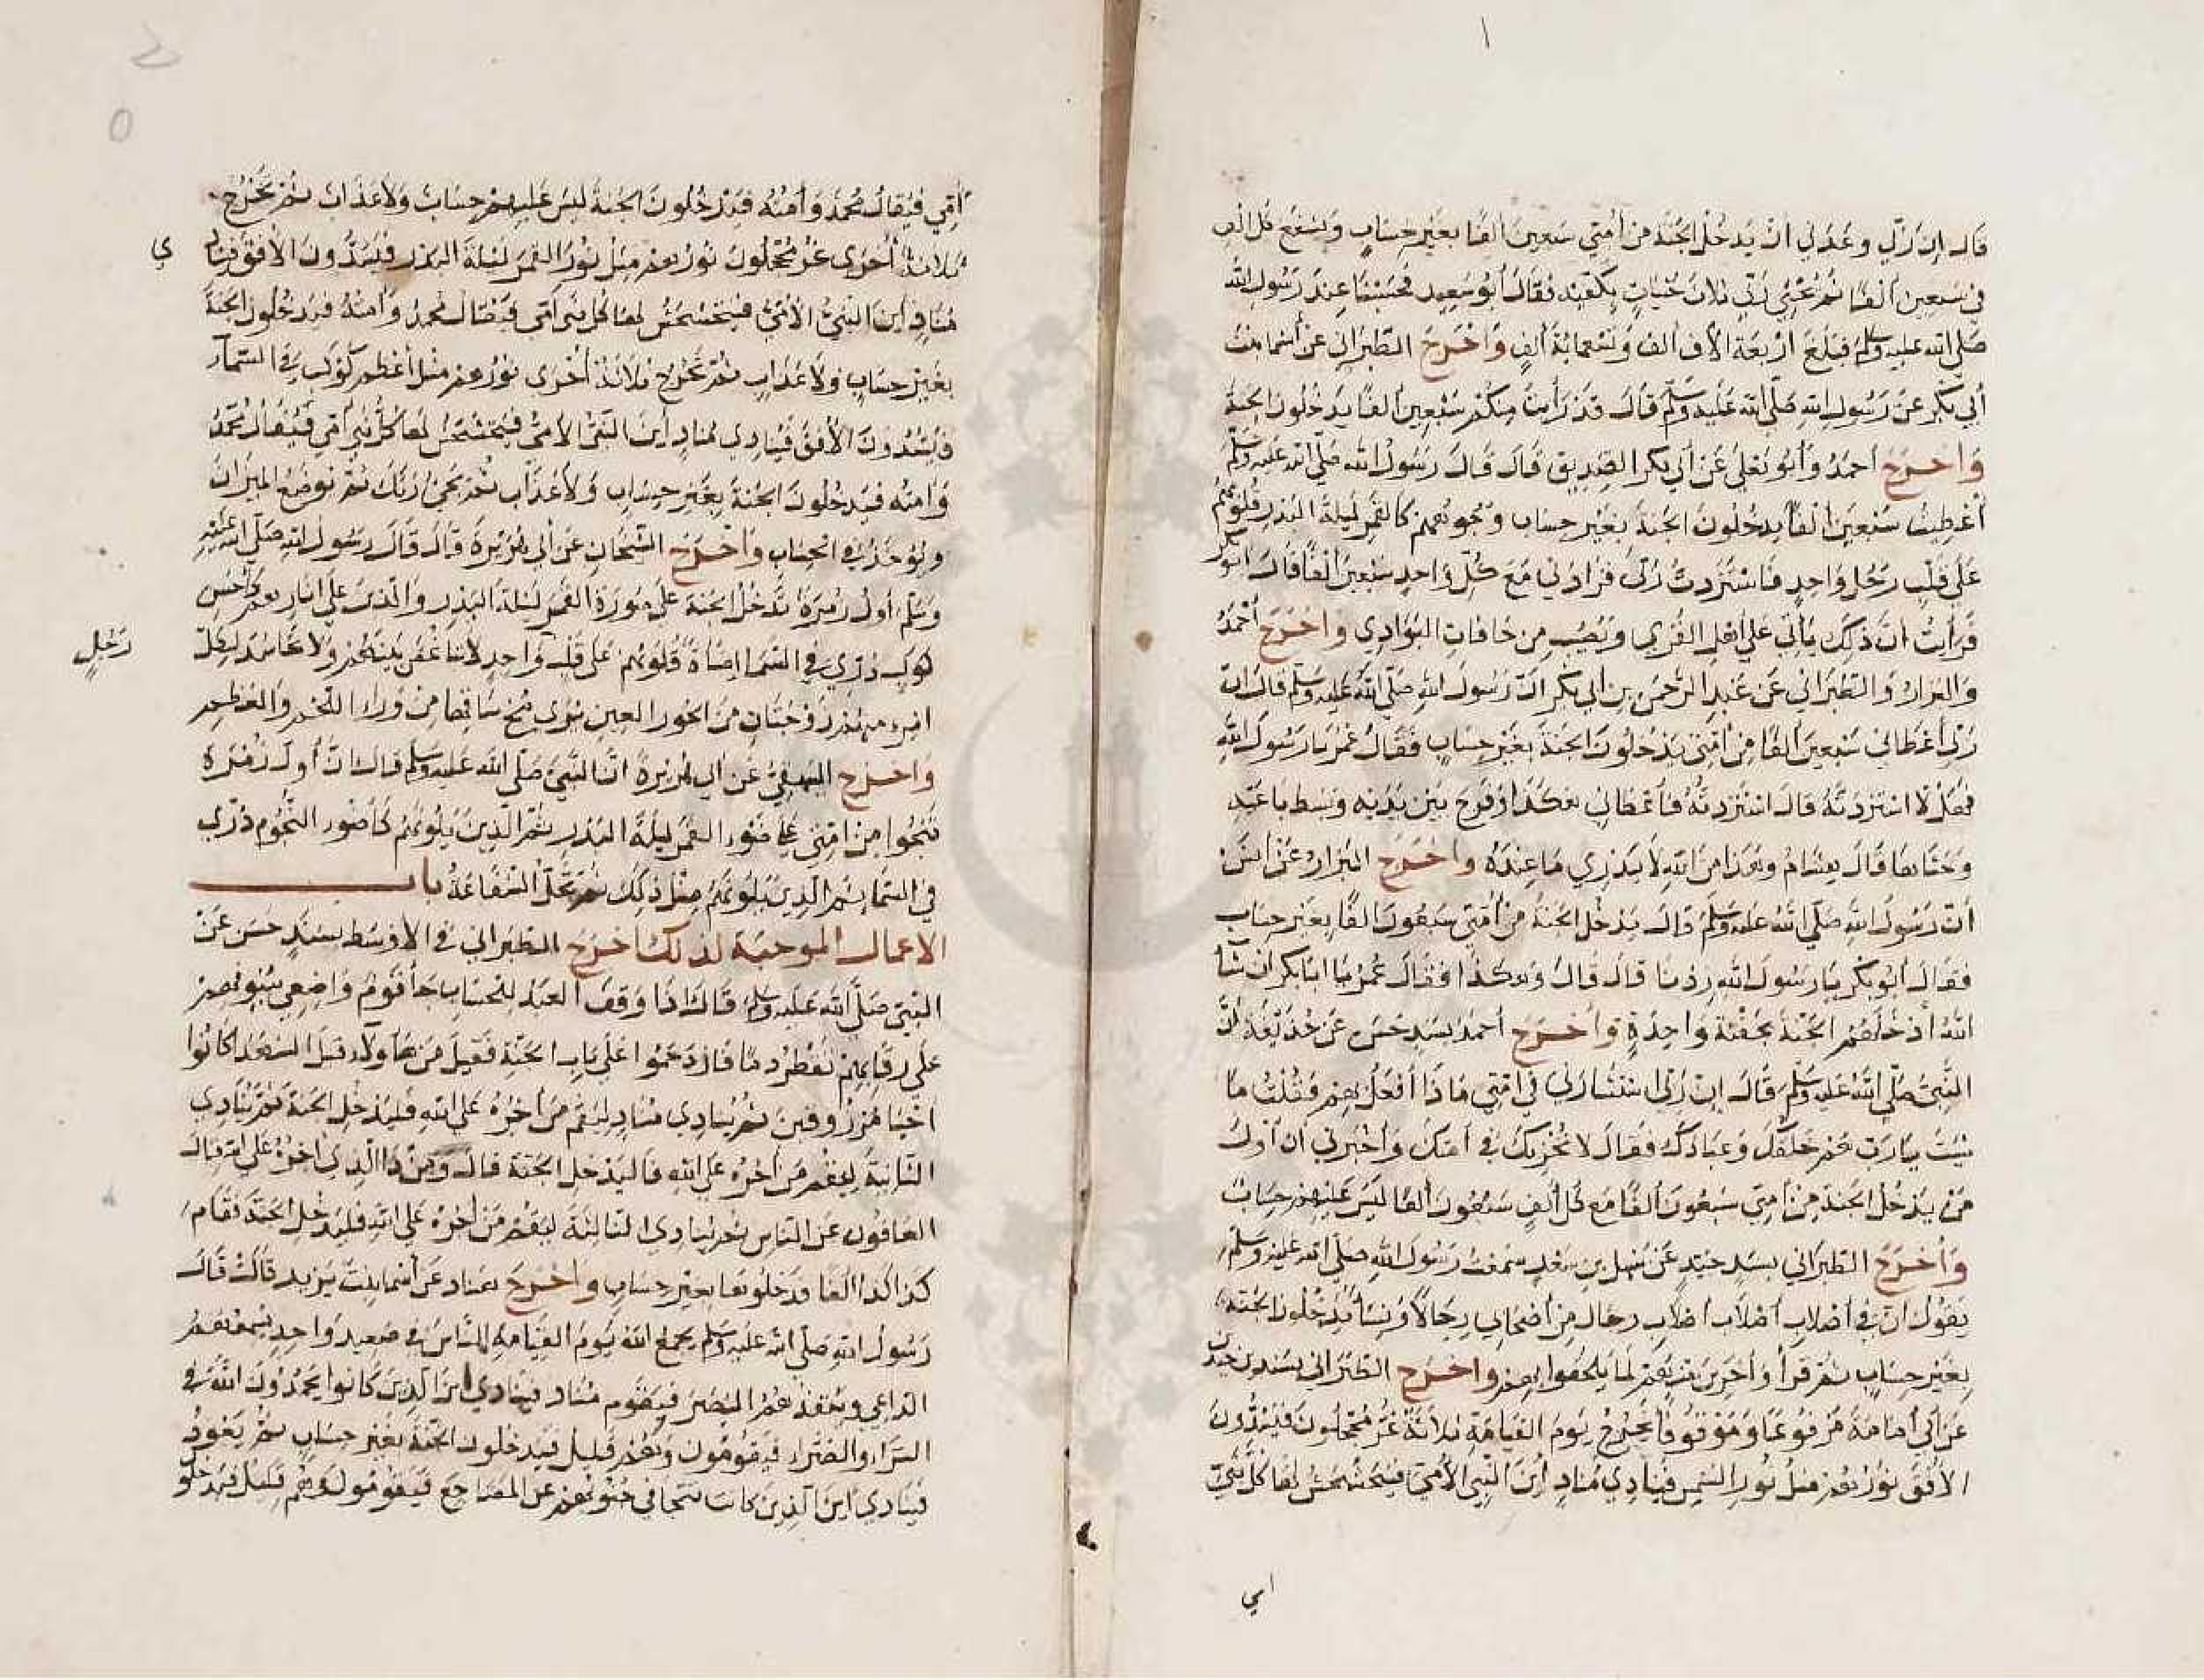 ١
قال ان ربي وعدني أن يدخل الجنة من أمتي سبعين ألفا بغير حساب ويشفع كل ألف
في سبعين ألفا ثم يحثي ربي ثلاث حثيات بكفيه فقال أبو سعيد فحسبنا عند رسول الله
صلى الله عليه وسلم فبلغ أربعة الاف ألف وتسعمائة ألف وأخرج الطبراني عن أسما بنت
أبي بكر عن رسول الله صلى الله عليه وسلم قال قد رأيت منكم سبعين ألفا يدخلون الجنة
وأخرج أحمد وأبو يعلى عن أبي بكر الصديق قال قال رسول الله صلى الله عليه وسلم
أعطيت سبعين ألفا يدخلون الجنة بغير حساب وجوههم كالقمر ليلة البدر قلوبهم
على قلب رجل واحد فاستزدت ربي فزادني مع كل واحد سبعين ألفا قال ابو بكر
فرأيت ان ذلك يأتي على أهل القرى ويصيب من حافات البوادي وأخرج أحمد
والبزار والطبراني عن عبد الرحمن بن ابي بكر ان رسول الله صلى الله عليه وسلم قال ان
ربي أعطاني سبعين ألفا من أمتي يدخلون الجنة بغير حساب فقال عمر يا رسول الله
فهلا استزدته قال استزدته فأعطاني هكذا وفرج بين يديه وبسط باعيه
وحثا بها قال هشام وهذا من الله لا يدري ما عنده وأخرج البزار عن انس
أن رسول الله صلى الله عليه وسلم قال يدخل الجنة من أمتي سبعون الفا بغير حساب
فقال أبو بكر يا رسول الله زدنا قال قال وهكذا فقال عمر يا ابا بكر ان شآ
الله أدخلهم الجنة بحفنة واحدة وأخرج أحمد بسند حسن عن حذيفة ان
النبي صلى الله عليه وسلم قال إن ربي استشارني في امتي ماذا أفعل بهم فقلت ما
شيت يا رب هم خلقك وعبادك فقال لا نخزيك في امتك وأخبرني ان أول
من يدخل الجنة من أمتي سبعون ألفا مع كل ألف سبعون ألفا ليس عليهم حساب
وأخرج الطبراني بسند جيد عن سهل بن سعد سمعت رسول الله صلى الله عليه وسلم
يقول ان في أصلاب أصلاب أصلاب رجال من أصحابي رجالا ونسأ يدخلون الجنة
بغير حساب ثم قرأ وأخرين منهم لما يلحقوا بهم وأخرج الطبراني بسندين
عن أبي أمامة مرفوعا وموقوفا يخرج يوم القيامة ثلاثة غر محجلون فيسدون
الأفق نورهم مثل نور الشمس فينادي مناد أين النبي الأمي فيتحشحش لها كل نبي
امي
أمي فيقال محمد وأمته فيدخلون الجنة ليس عليهم حساب ولا عذاب ثم تخرج
ثلاثة أخرى غر محجلون نورهم مثل نور القمر ليلة البدر فيسدون الأفق فينا
دي
مناد أين النبي الأمي فيتحشحش لها كل نبي أمي فيقال محمد وأمته فيدخلون الجنة
بغير حساب ولا عذاب ثم تخرج ثلاثة أخرى نورهم مثل أعظم كوكب في السمآ
فيسدون الأفق فينادي مناد أين النبي الأمي فيتحشحش لها كل نبي أمي فيقال محمد
وأمته فيدخلون الجنة بغير حساب ولا عذاب ثم يجئ ربك ثم يوضع الميزان
ويؤخذ في الحساب وأخرج الشيخان عن أبي هريرة قال قال رسول الله صلى الله عليه
وسلم أول زمرة تدخل الجنة على صورة القمر ليلة البدر والذين على اثارهم كأحسن
كوكب دري في السما اضاءة قلوبهم على قلب واحد لا تباغض بينهم ولا تحاسد لكل
رجل
امرء منهم زوجتان من الحور العين يرى مخ ساقها من وراء اللحم والعظم
وأخرج البيهقي عن ابي هريرة ان النبي صلى الله عليه وسلم قال ان أول زمرة
تنجوا من امتي على ضوء القمر ليلة البدر ثم الذين يلونهم كأضوء النجوم دري
في السمآ ثم الذين يلونهم مثل ذلك ثم تحل الشفاعة باب
الاعمال الموجبة لذلك أخرج الطبراني في الاوسط بسند حسن عن
النبي صلى الله عليه وسلم قال اذا وقف العبد للحساب جأ قوم واضعي سيوفهم
على رقابهم تقطر دما فازدحموا على باب الجنة فقيل من هاولاء قيل الشهدا كانوا
احيا مرزوقين ثم ينادي مناد ليقم من أجره على الله فليدخل الجنة ثم ينادي
الثانية ليقم من أجره على الله فاليدخل الجنة قال ومن ذا الذي اجره على الله قال
العافون عن الناس ثم ينادي الثالثة ليقم من أجره على الله فليدخل الجنة فقام
كذا كذا الفا فدخلوها بغير حساب وأخرج هناد عن أسما بنت يزيد قالت قال
رسول الله صلى الله عليه وسلم يجمع الله يوم القيامة الناس في صعيد واحد يسمعهم
الداعي وينفذهم البصر فيقوم مناد فينادي اين الذين كانوا يحمدون الله في
السراء والضراء فيقومون وهم قليل فيدخلون الجنة بغير حساب ثم يعود
فينادي اين الذين كانت تتجافى جنوبهم عن المضاجع فيقومون وهم قليل فيدخلون